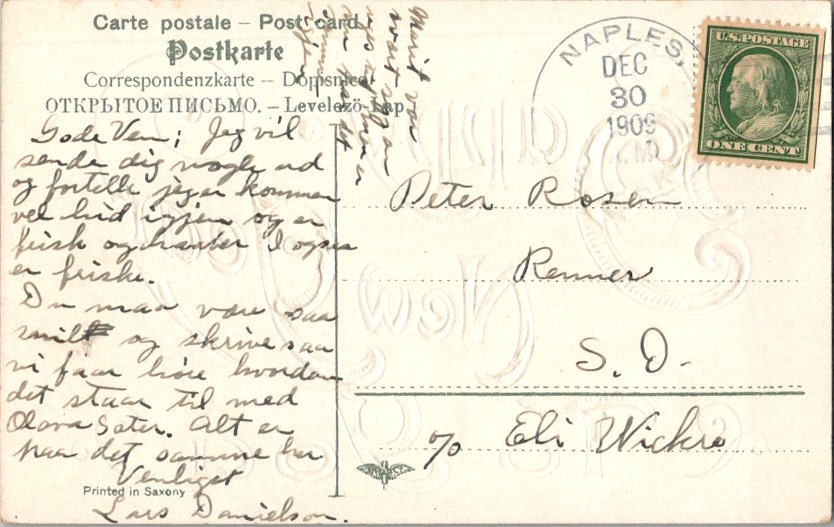 Carte postale – Post card
Postkarte
Correspondenzkarte – Dopisnice
ОТКРЫТОЕ ПИСЬМО. – Levelező-Lap.
Gode Ven; Jeg vil
sende dig nogle ord
og fortelle jeg er kommen
vel hid igjen og er
frisk og haaber I ogsaa
er friske.
Du maa være saa
snill og skrive saa
vi faar høre hvordan
det staar til med
Olava Sater. Alt er
paa det samme her
Venligst
Lars Danielson.
Printed in Saxony
Marit var
svært
NAPLES,
DEC
30
1909
M
U.S. POSTAGE
ONE CENT
Peter Rosen
Renner
S. D.
c/o Eli Wickre